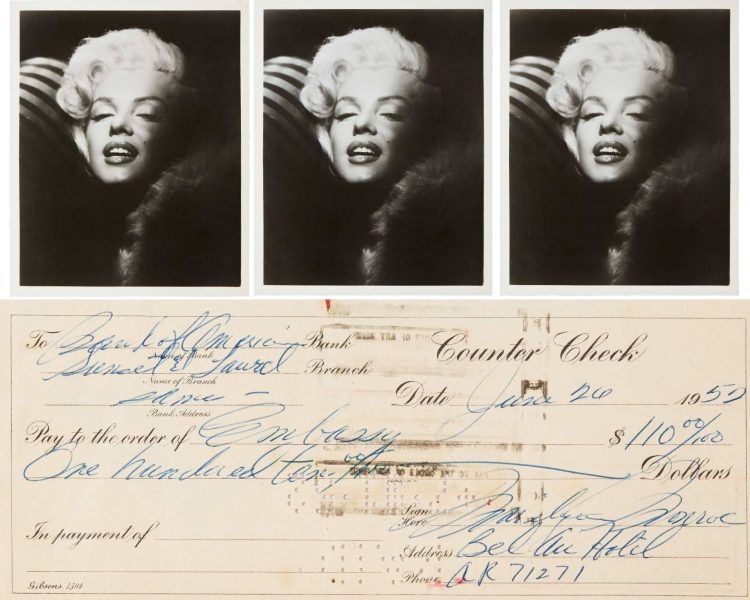 To Bank of America Bank
Name of Bank
Sunset & Laurel Branch
Name of Branch
Counter Check
same -
Bank Address
Date June 26 1952
Pay to the order of Embassy $ 110 00/100
One hundred ten 00 Dollars
Sign Here Marilyn Monroe
In payment of
Address Bel Air Hotel
Phone AR 71271
Gibsons 1504